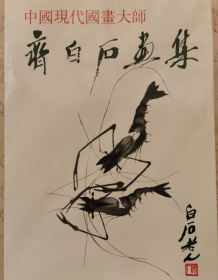 中國現代國畫大師
齊白石畫集
白石老人